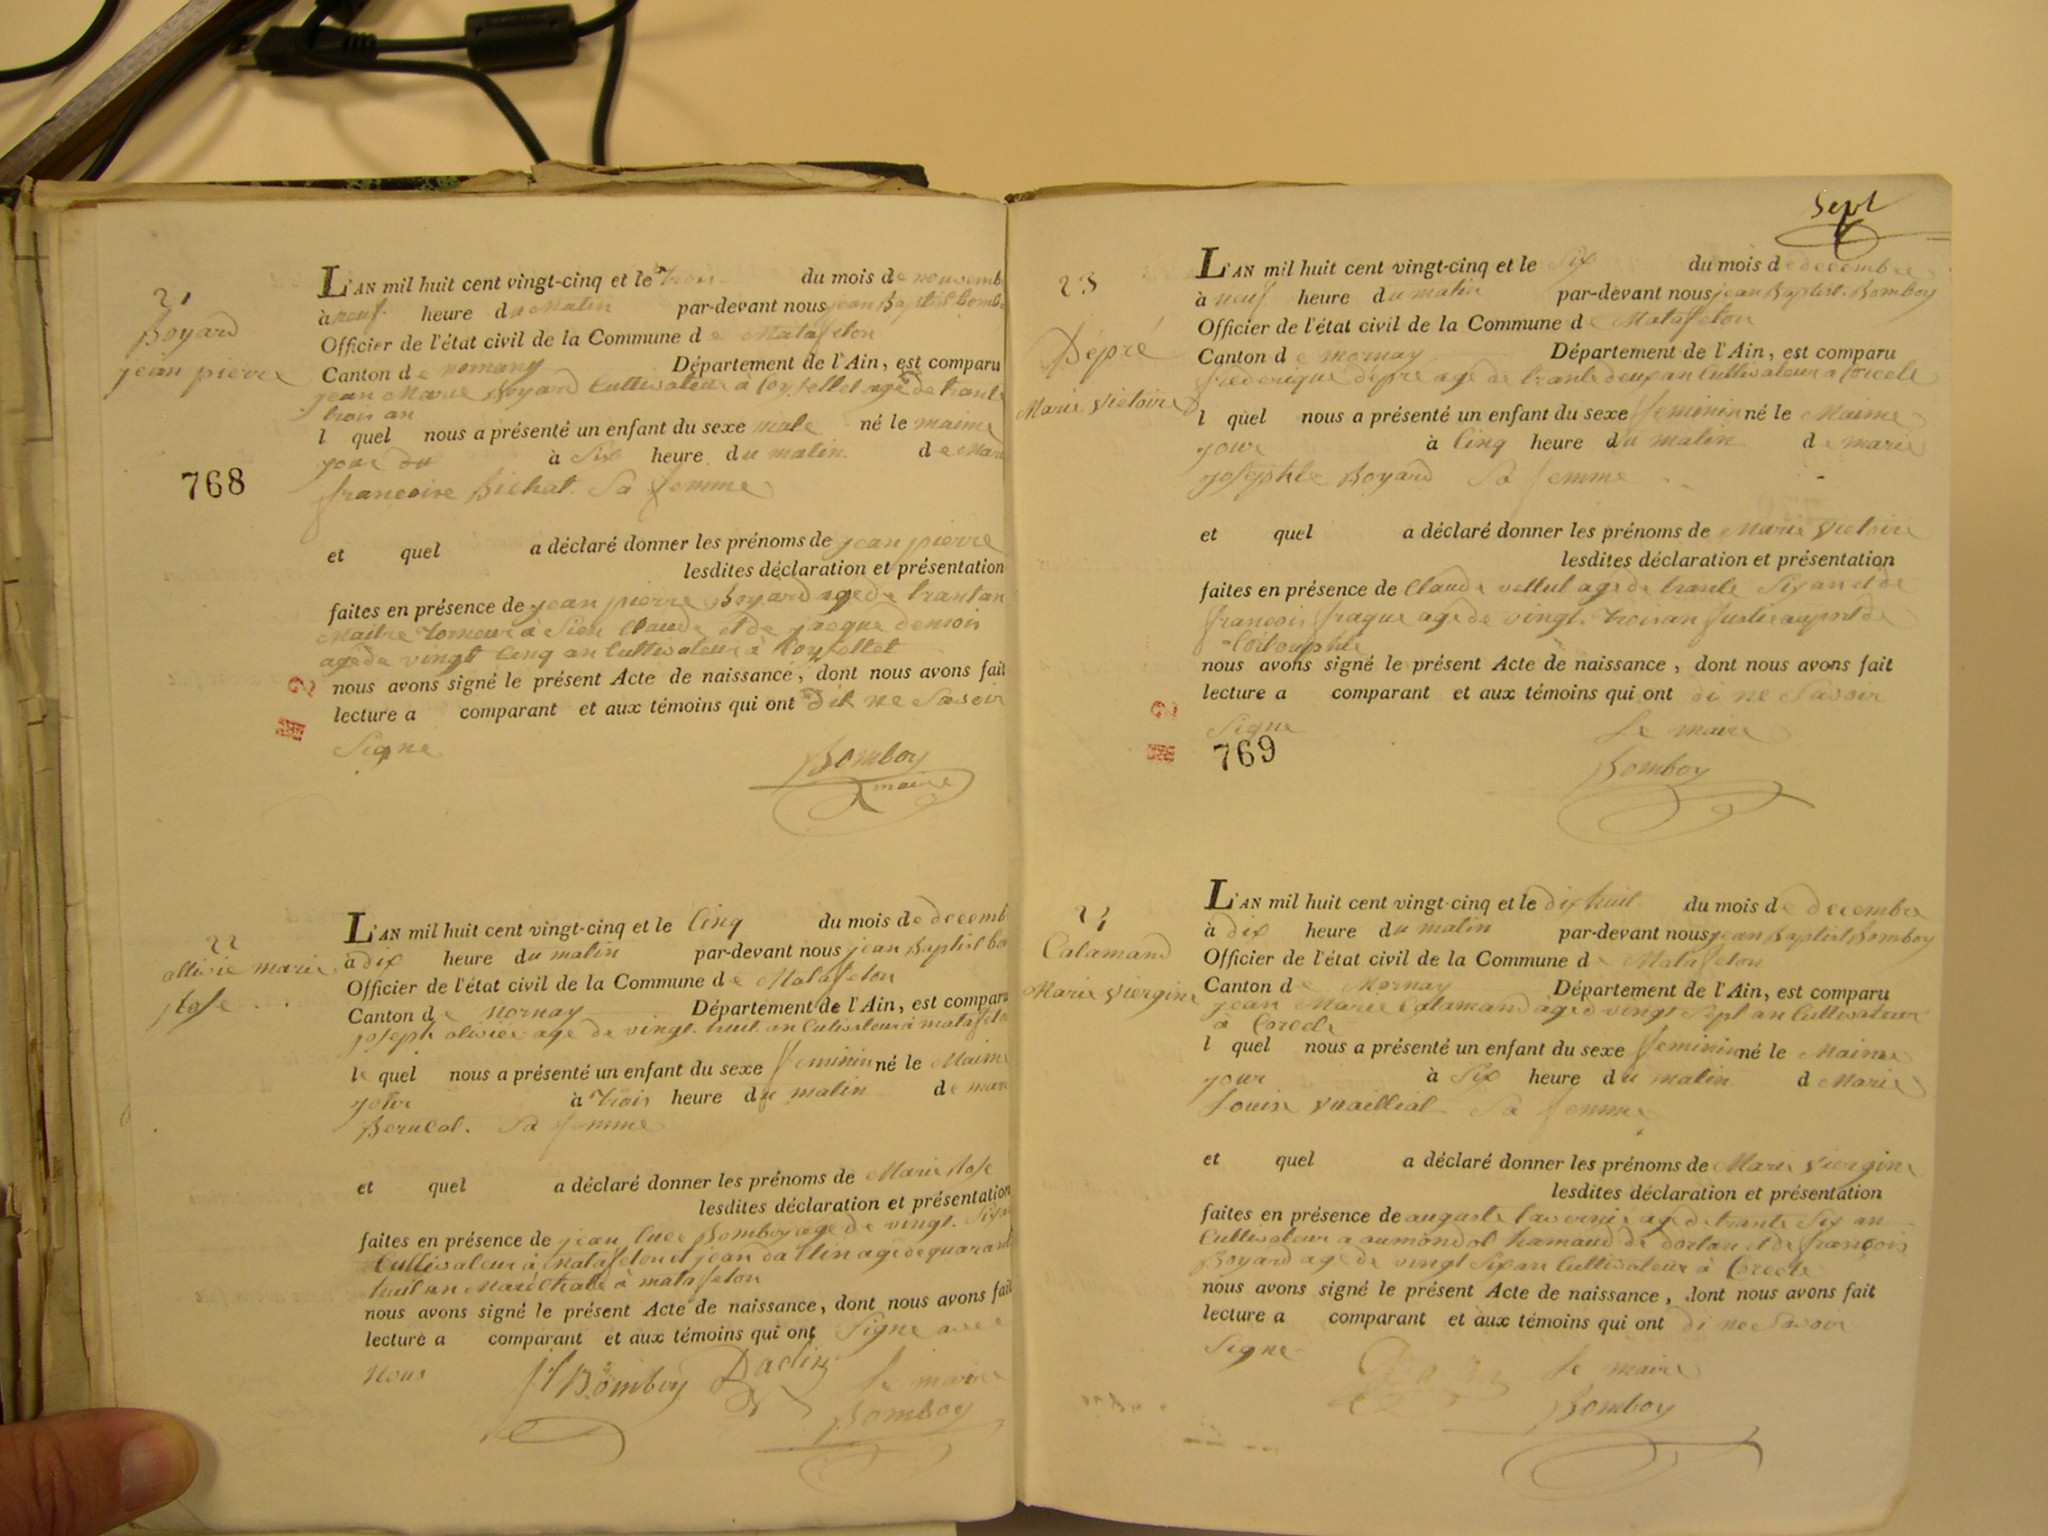 21
Boyard
jean pierre
768
L'AN mil huit cent vingt-cinq et le trois du mois de novemb
à neuf heure du Matin par-devant nous jean Baptist bomb
Officier de l'état civil de la Commune de Matafelon
Canton de nornany Département de l'Ain, est comparu
jean Marie Boyard Cultivateur à Coyssellet agé de trante
trois an
l quel nous a présenté un enfant du sexe male né le maime
jour du à Six heure du matin de Mari
francoise Bichat Sa femme
et quel a déclaré donner les prénoms de jean pierre
lesdites déclaration et présentation
faites en présence de jean pierre Boyard age de trant an
Maitre à Sien Claude et de jacque
agé de vingt Cinq an Cultivateur à
nous avons signé le présent Acte de naissance, dont nous avons fait
lecture a comparant et aux témoins qui ont dit ne Savoir
Signe
Bomboy
maire
22
ollivie marie
Rose
L'AN mil huit cent vingt-cinq et le Cinq du mois de decemb
à dix heure du matin par-devant nous jean Baptist bo
Officier de l'état civil de la Commune de Matafelon
Canton de Mornay Département de l'Ain, est comparu
joseph olivier age de vingt huit an Cultivateur à matafelon
le quel nous a présenté un enfant du sexe feminin né le Maime
jour à trois heure du matin de mari
Sa femme
et quel a déclaré donner les prénoms de Marie Rose
lesdites déclaration et présentation
faites en présence de jean luc Bomboy age de vingt Six
Cultivateur à Matafelon et jean dallin age de quarante
huit an Maréchale à matafelon
nous avons signé le présent Acte de naissance, dont nous avons fait
lecture a comparant et aux témoins qui ont Signe avec
nous
Bomboy Daclin Le maire
Bomboy
Sept
23
Dépré
Marie Victoire
L'AN mil huit cent vingt-cinq et le Six du mois de decembre
à neuf heure du matin par-devant nous jean Baptist Bomboy
Officier de l'état civil de la Commune de Matafelon
Canton de mornay Département de l'Ain, est comparu
frederique depre age de trante deux an Cultivateur à Corcele
l quel nous a présenté un enfant du sexe feminin né le Maime
jour à Cinq heure du matin de marie
josephte Boyard Sa femme
et quel a déclaré donner les prénoms de Marie Victoire
lesdites déclaration et présentation
faites en présence de Claude age de trante Six an et de
francois age de vingt trois an
nous avons signé le présent Acte de naissance, dont nous avons fait
lecture a comparant et aux témoins qui ont di ne Savoir
Signe Le maire
769
Bomboy
24
Calamand
Marie Viergine
L'AN mil huit cent vingt-cinq et le dix huit du mois de decembre
à dix heure du matin par-devant nous jean Baptist Bomboy
Officier de l'état civil de la Commune de Matafelon
Canton de Mornay Département de l'Ain, est comparu
jean Marie Calamand agé d vingt Sept an Cultivateur
à Corcele
l quel nous a présenté un enfant du sexe feminin né le Maime
jour à Six heure du matin d Marie
Louise Sa femme
et quel a déclaré donner les prénoms de Marie Viergine
lesdites déclaration et présentation
faites en présence de auguste age d trante Six an
Cultivateur a de dortan et de francois
Boyard age de vingt Six an Cultivateur à Corcele
nous avons signé le présent Acte de naissance, dont nous avons fait
lecture a comparant et aux témoins qui ont di ne Savoir
Signe Le maire
Bomboy